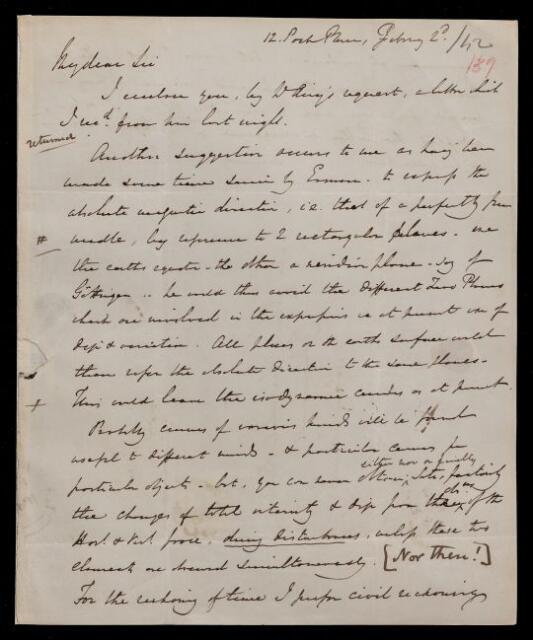 12. Park Place, Febry 2d/42
139
My dear Sir
I enclose you, by Dr Lloyd's request, a letter which
I recd. from him last night.
returned
Another suggestion occurs to me as having been
made some time since by Erman - to express the
absolute magnetic direction, i.e. that of a perfectly free
# needle, by reference to 2 rectangular planes - one
the earths equator - the other a meridian plane - say of
Göttingen .. he would thus avoid the different Planes
which are involved in the expression as at present in use of
Dip & variation. All places on the earths surface would
then refer the absolute direction to the same planes -
+ This would leave the isodynamic curves as at present.
Probably curves of various kinds will be found
useful to different minds - & particular curves for
particular objects - but, you can never obtain,
either now or finally
the changes of total intensity & dip from those of the
Horl & Vertl force, during disturbances, unless these two
elements are observed simultaneously. [Nor then!]
For the reckoning of time I prefer civil reckoning